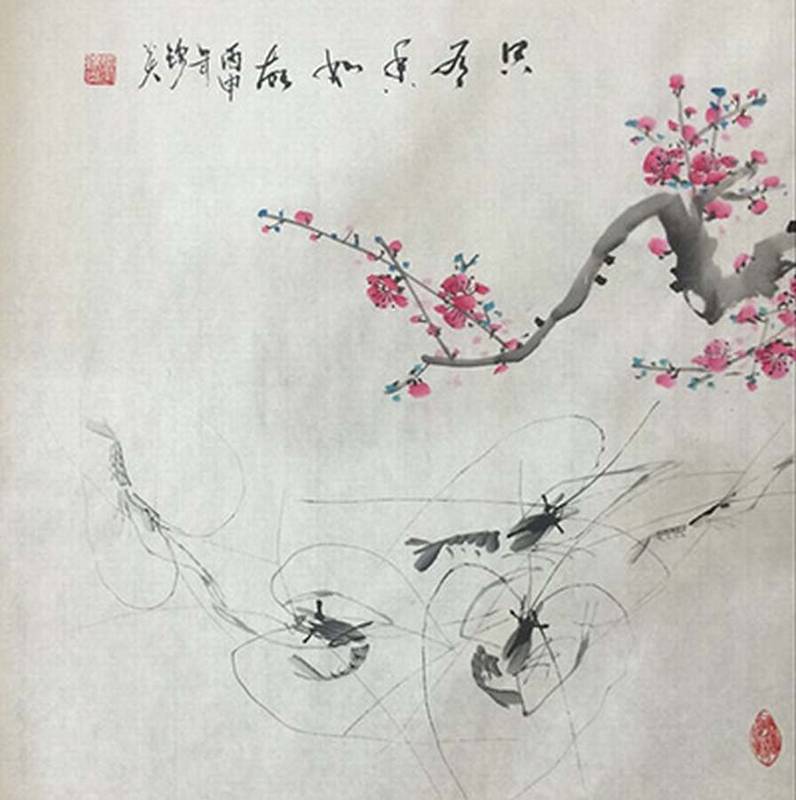 只有香如故 丙申年 錦芳